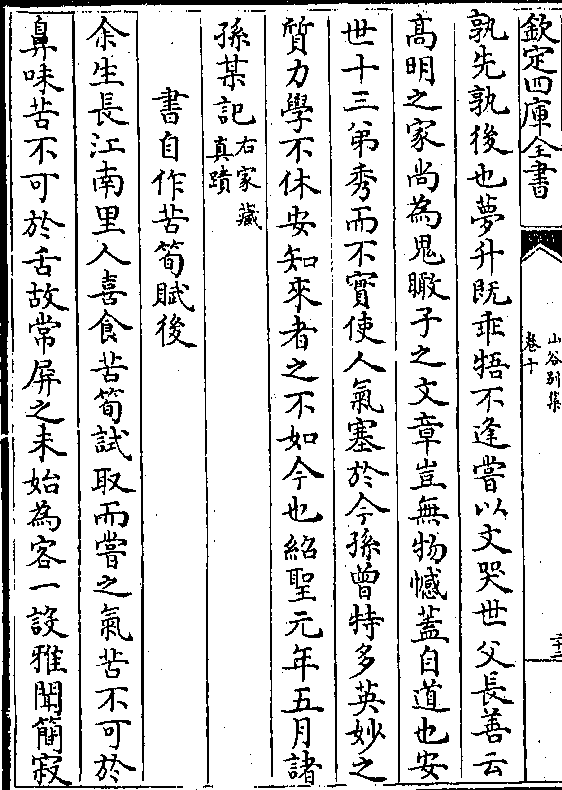 欽定四庫全書
山谷别集
卷十
孰先孰後也夢升既乖牾不逢嘗以文哭世父長善云
髙明之家尚為鬼瞰子之文章豈無物憾蓋自道也安
世十三弟秀而不實使人氣塞於今孫曾特多英妙之
質力學不休安知來者之不如今也紹聖元年五月諸
孫某記右家藏真蹟
書自作苦筍賦後
余生長江南里人喜食苦筍試取而嘗之氣苦不可於
鼻味苦不可於舌故常屏之未始為客一設雅聞簡寂